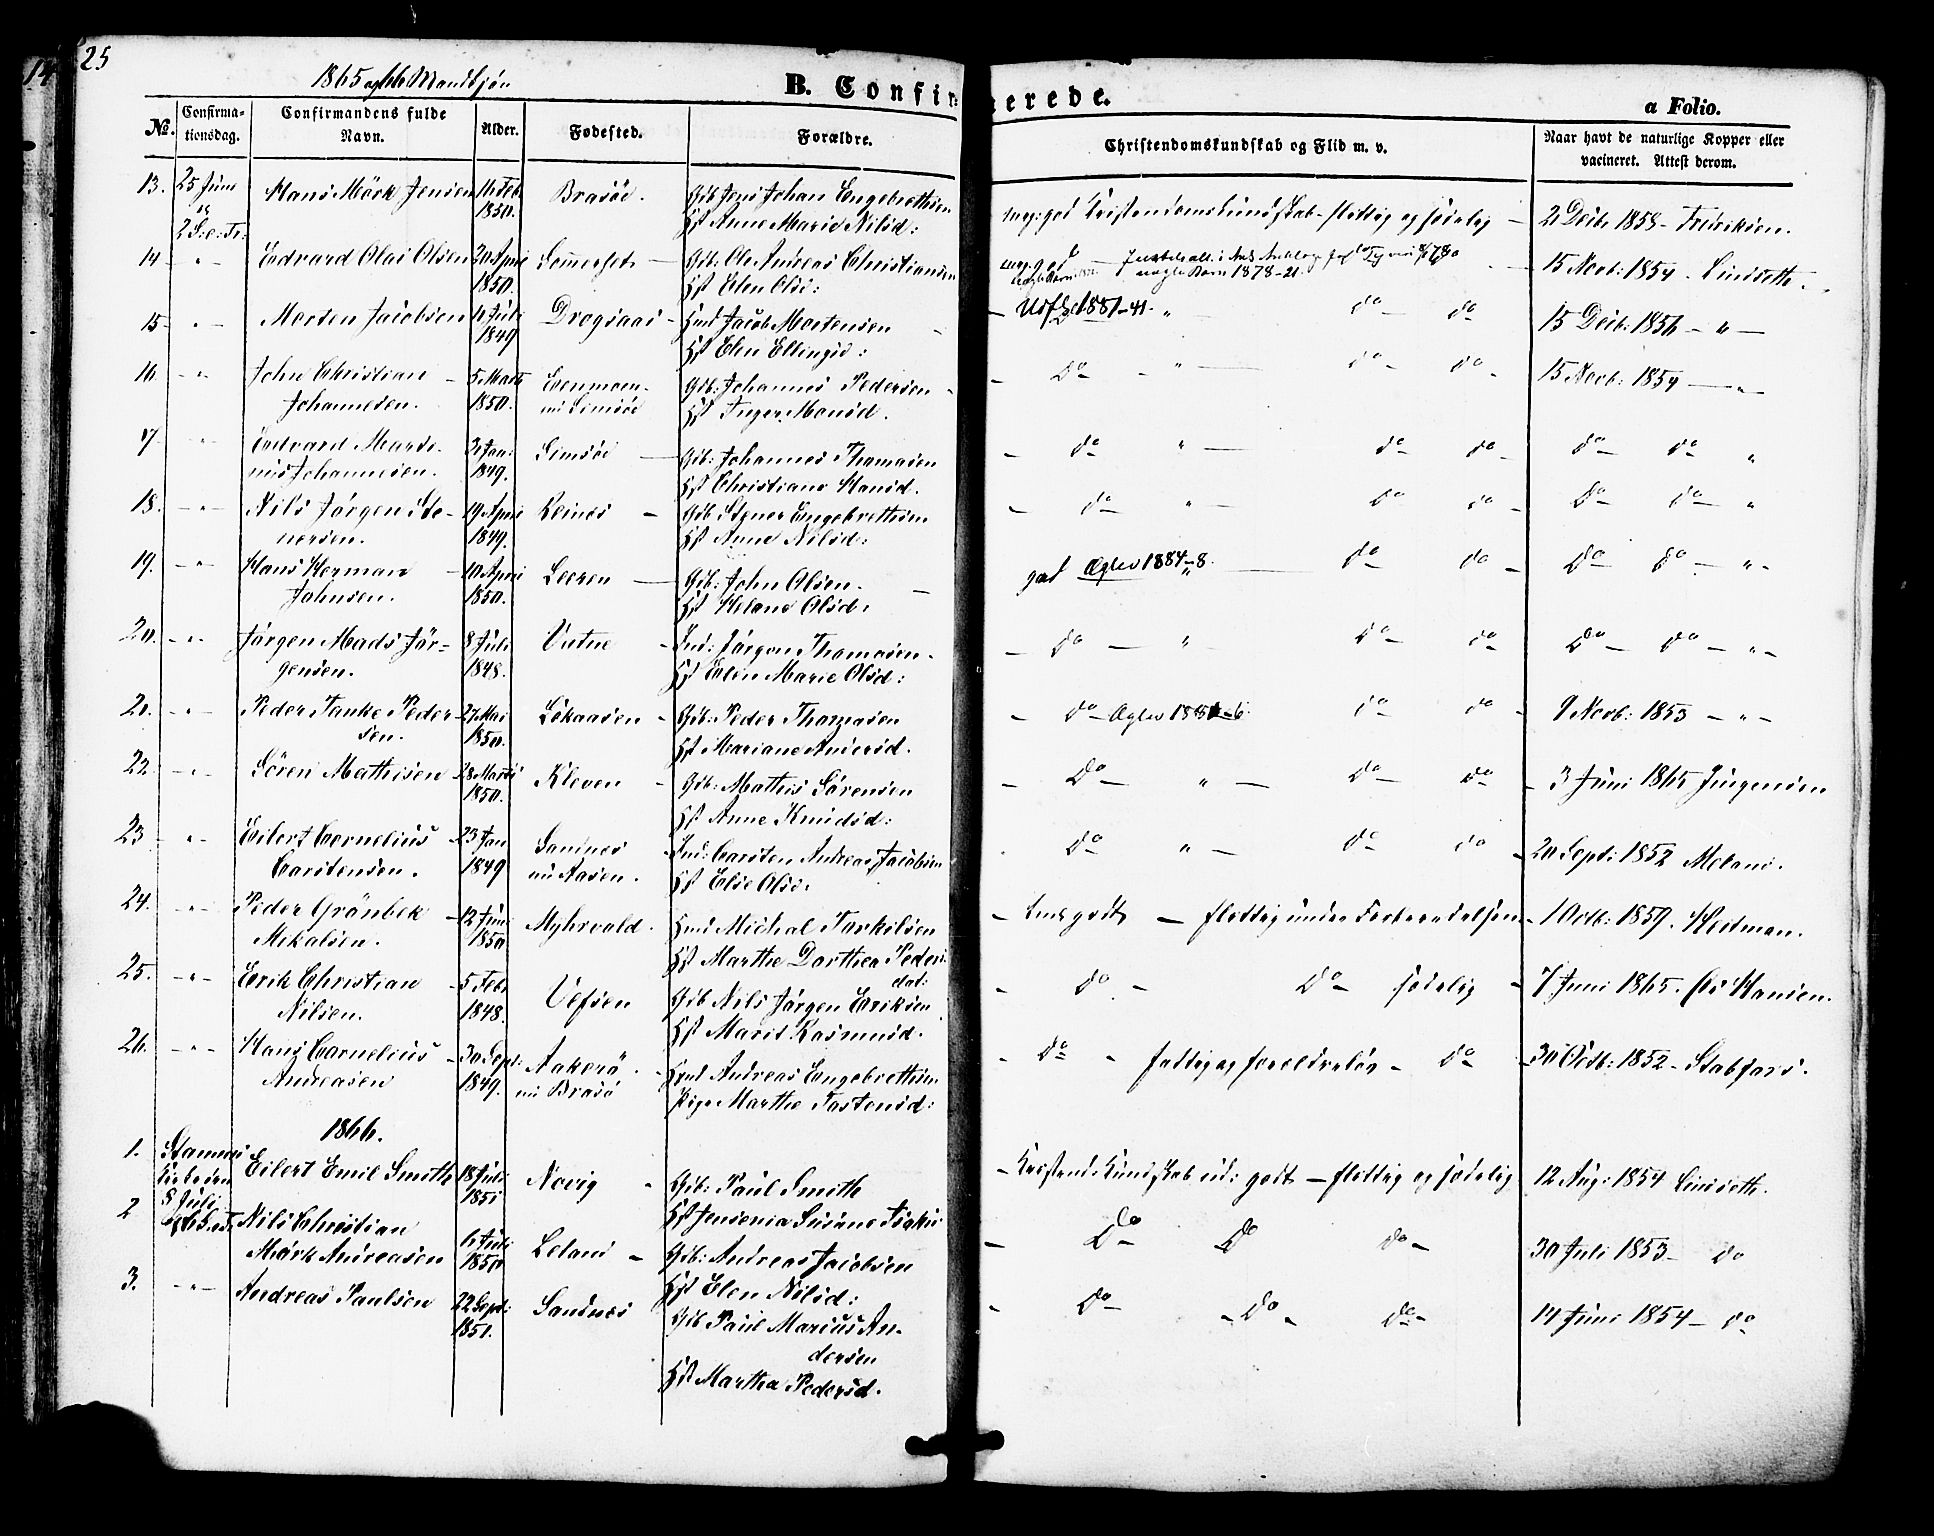 25
1865 og 66 Mandkjøn
B. Confirmerede.
a Folio.
No. Confirmationsdag. Confirmandens fulde Navn. Alder. Fødested. Forældre. Christendomskundskab og Flid m. v. Naar havt de naturlige Kopper eller vacineret. Attest derom.
13. 25 Juni Hans Mörk Jensen 16 Feb 1850. Brasöe. Gdb Jens Johan Engebrethsen
2 S: e: Tr: Hst Anne Marie Nilsd: meg: god Kristendomskundskab – flittig og sædelig – 2 Decb. 1853 – Fredriksen.
14 – " – Edvard Olai Olsen 20 April 1850. Somerset – Gdb: Ole Andreas Christiansen
Hst Elen Olsd: meg: god 1878–21. 15 Novb: 1854. Linseth.
15 – " – Morten Jacobsen 6 Juli 1849 Dragsaas – Hmd Jacob Mortensen
Hst Elen Ellingsd: Udf 1881–41. " – do do 15 Decb: 1856 – " –
16. – " – John Christian Johannesen. 5 Marts 1850. Gdb: Johannes Pedersen –
Hst Inger Monsd. – Do – " – do – do – 15 Novb: 1854 – " –
17 " Edvard Mareniusjohannesen. 3 Jan: 1849. Simsöe – Gdb: Johannes Thomasen
Hst Christiane Hansd. – do – " – do – do – do – do – "
18. – " – Nils Jörgen Stenersen. 19 April 1849. Reines – Gdb Stener Engebrethsen
Hst Anne Nilsd: – do – " – do – do – Do – do – "
19. – " – Hans Herman Johnsen. 10 April 1850. Leeren – Gdb: John Olsen. –
Hst Helene Olsd: god Aglev 1884–8. " – do – do – Do – do – " –
20. – " – Jörgen Mads Jörgensen. 8 Juli 1848. Vutne – Ind: Jörgen Thomasen –
Hst Elen Marie Olsd: – do – " – do – do – Do – do – " –
21. – " – Peder Tanke Pedersen. 27 Mai 1850. Lökaasen – Gdb: Peder Thomasen
Hst Mariane Andersd. – do – Aglev 1881–6. do – do – 9 Novb: 1853 – " –
22. – " – Sören Mathisen 28 Marts 1850. Kleven – Gdb: Mathis Sörensen
Hst Anne Knudsd: – Do – " – do – do – 3 Juni 1865 Jürgensen
23 – " – Eilert Cornelius Carstensen. 23 Jan 1849 Sandnes nu Aasen. Ind: Carsten Andreas Jacobsen
Hst Else Olsd: Do – " – do – do – 20 Sept: 1852
24. – " – Peder Grönbek Mikalsen. 12 Juni 1850 Myhrvold. Hmd Michal Torkilsen
Hst Marthe Dorthea Peders
dat: – godt – flittig under Forberedelsen – 1 Octb: 1859. Heitman.
25. – " – Erik Christian Nilsen. 5 Feb: 1848. Vefsen Gdb Nils Jörgen Eriksen
Hst Marit Rasmusd. – do – Do – sædelig – 7 Juni 1865. Hansen.
26. – " – Hans Cornelius Andreasen 30 Sept: 1849. Aakerö nu Brasö Hmd Andreas Engebrethsen
Pige Marthe Tostensd: – do – fattig og forældreløs – do – 30 Octb: 1852 –
1866.
1. Stamnes Kirke den 8 Juli Eilert Emil Smith 18 Juli 1851 Novig – Gdb: Paul Smith
Hst Jensenia Susane – Kristend: Kundskab ud: godt – flittig og sædelig 12 Aug: 1854 Linseth.
2 Nils Christian Mörk Andreasen 6 Juli 1850 Leland – Gdb: Andreas Jacobsen
Hst Elen Nilsd: – Do – Do – do – 30 Juli 1853 – do
3. – " – Andreas Paulsen 22 Sept: 1851. Sandnes Gdb Paul Marcus Andersen
Hst Martha Pedersd. – Do – – Do – do – 14 Juni 1854 – do